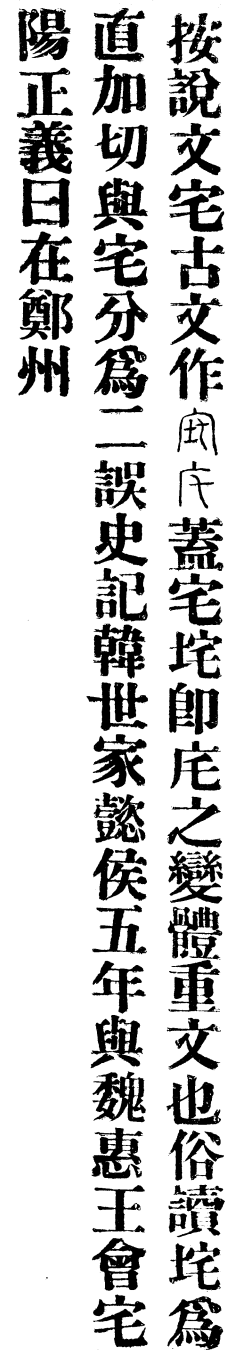 按說文宅古文作𡧪㡯蓋宅垞卽㡯之變體重文也俗讀垞爲
直加切與宅分爲二誤史記韓世家懿侯五年與魏惠王會宅
陽正義曰在鄭州